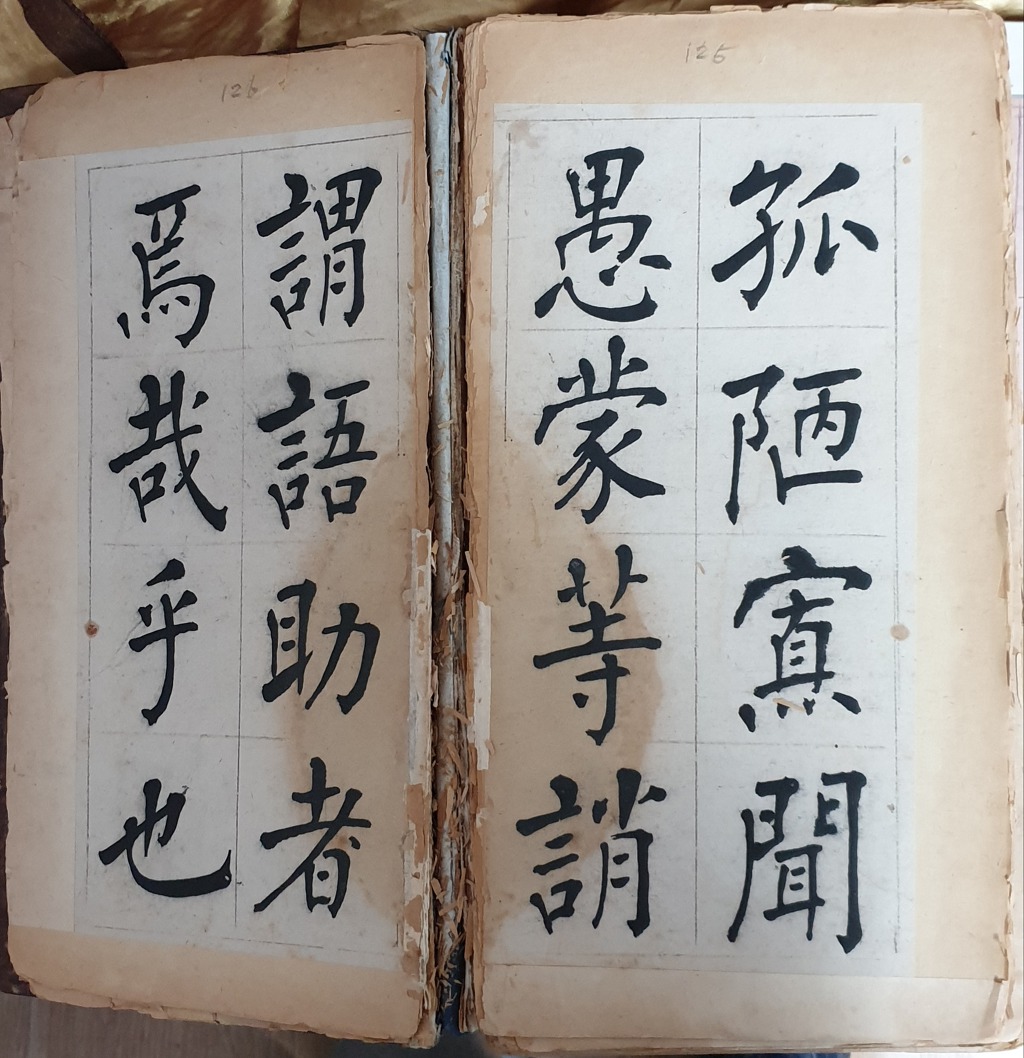 125
孤陋寡聞
愚蒙等誚
126
謂語助者
焉哉乎也